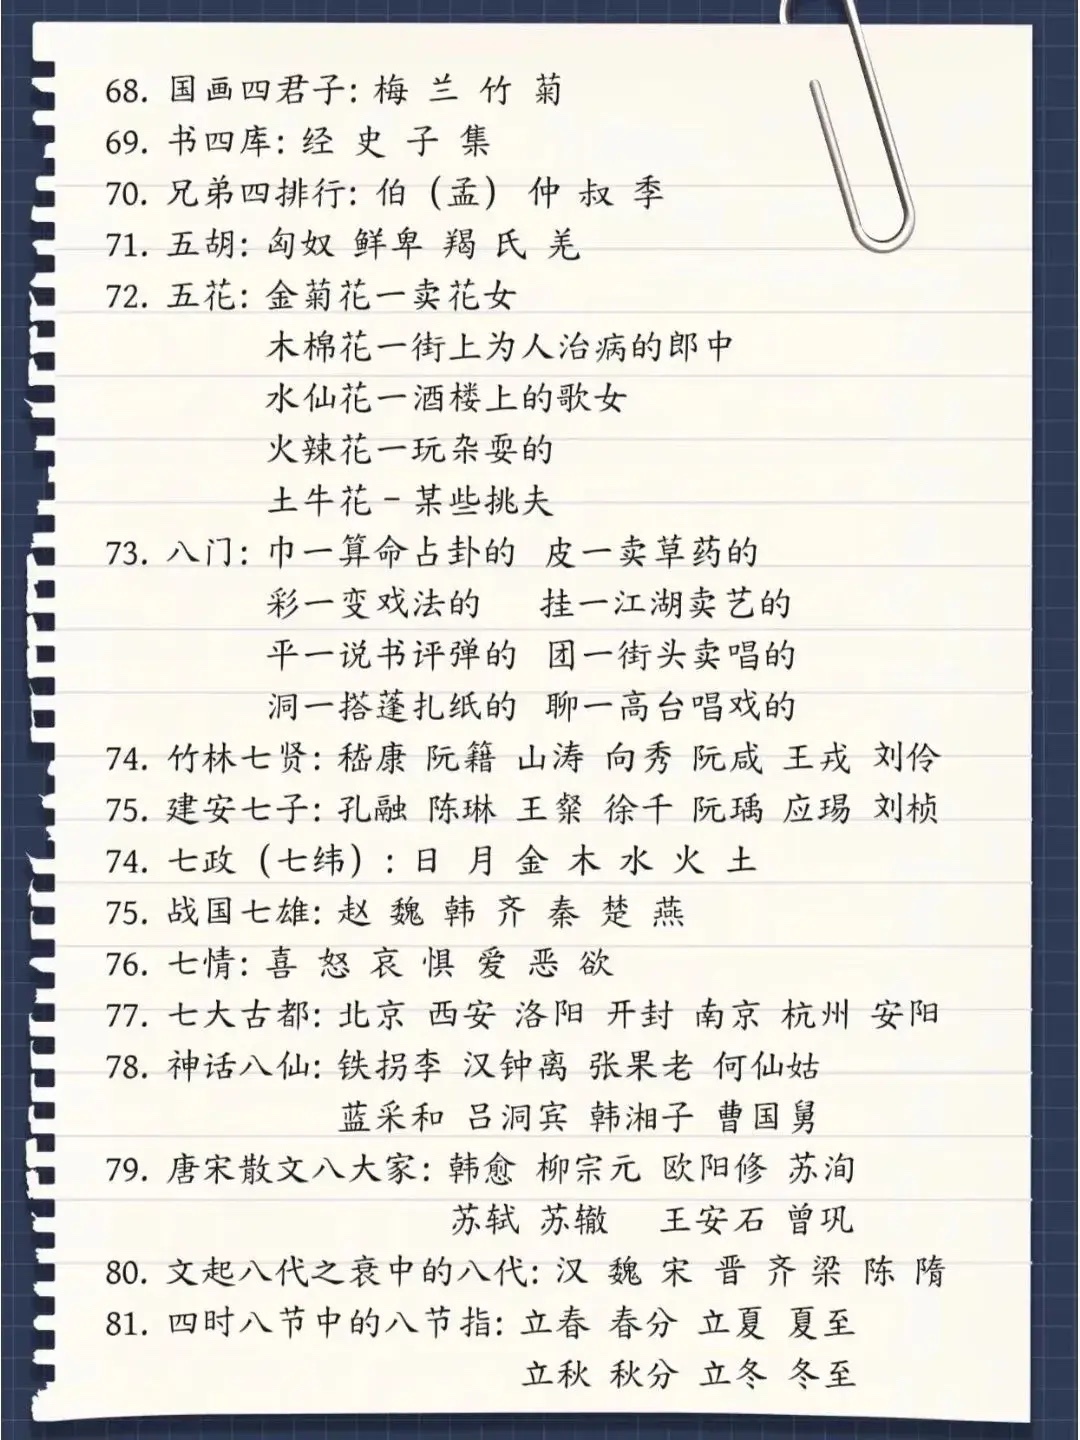 68. 国画四君子: 梅 兰 竹 菊
69. 书四库: 经 史 子 集
70. 兄弟四排行: 伯（孟） 仲 叔 季
71. 五胡: 匈奴 鲜卑 羯 氏 羌
72. 五花: 金菊花一卖花女
木棉花一街上为人治病的郎中
水仙花一酒楼上的歌女
火辣花一玩杂耍的
土牛花－某些挑夫
73. 八门: 巾一算命占卦的 皮一卖草药的
彩一变戏法的 挂一江湖卖艺的
平一说书评弹的 团一街头卖唱的
洞一搭蓬扎纸的 聊一高台唱戏的
74. 竹林七贤: 嵇康 阮籍 山涛 向秀 阮咸 王戎 刘伶
75. 建安七子: 孔融 陈琳 王粲 徐千 阮瑀 应瑒 刘桢
74. 七政（七纬）: 日 月 金 木 水 火 土
75. 战国七雄: 赵 魏 韩 齐 秦 楚 燕
76. 七情: 喜 怒 哀 惧 爱 恶 欲
77. 七大古都: 北京 西安 洛阳 开封 南京 杭州 安阳
78. 神话八仙: 铁拐李 汉钟离 张果老 何仙姑
蓝采和 吕洞宾 韩湘子 曹国舅
79. 唐宋散文八大家: 韩愈 柳宗元 欧阳修 苏洵
苏轼 苏辙 王安石 曾巩
80. 文起八代之衰中的八代: 汉 魏 宋 晋 齐 梁 陈 隋
81. 四时八节中的八节指: 立春 春分 立夏 夏至
立秋 秋分 立冬 冬至